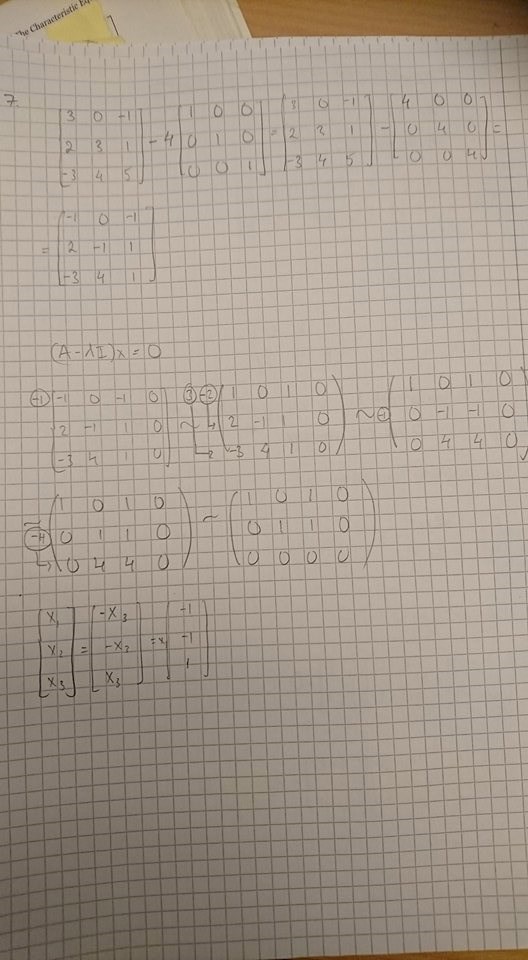 The Characteristic Eq
7.
[3 0 -1; 2 3 1; -3 4 5] - 4 [1 0 0; 0 1 0; 0 0 1] = [3 0 -1; 2 3 1; -3 4 5] - [4 0 0; 0 4 0; 0 0 4] =
= [-1 0 -1; 2 -1 1; -3 4 1]
(A - λI)x = 0
(-1) [-1 0 -1 0; 2 -1 1 0; -3 4 1 0] ~ (3) (-2) (1 0 1 0; 2 -1 1 0; -3 4 1 0) ~ (-1) (1 0 1 0; 0 -1 -1 0; 0 4 4 0)
~ (-4) (1 0 1 0; 0 1 1 0; 0 4 4 0) ~ (1 0 1 0; 0 1 1 0; 0 0 0 0)
[x₁; x₂; x₃] = [-x₃; -x₃; x₃] = x [-1; -1; 1]